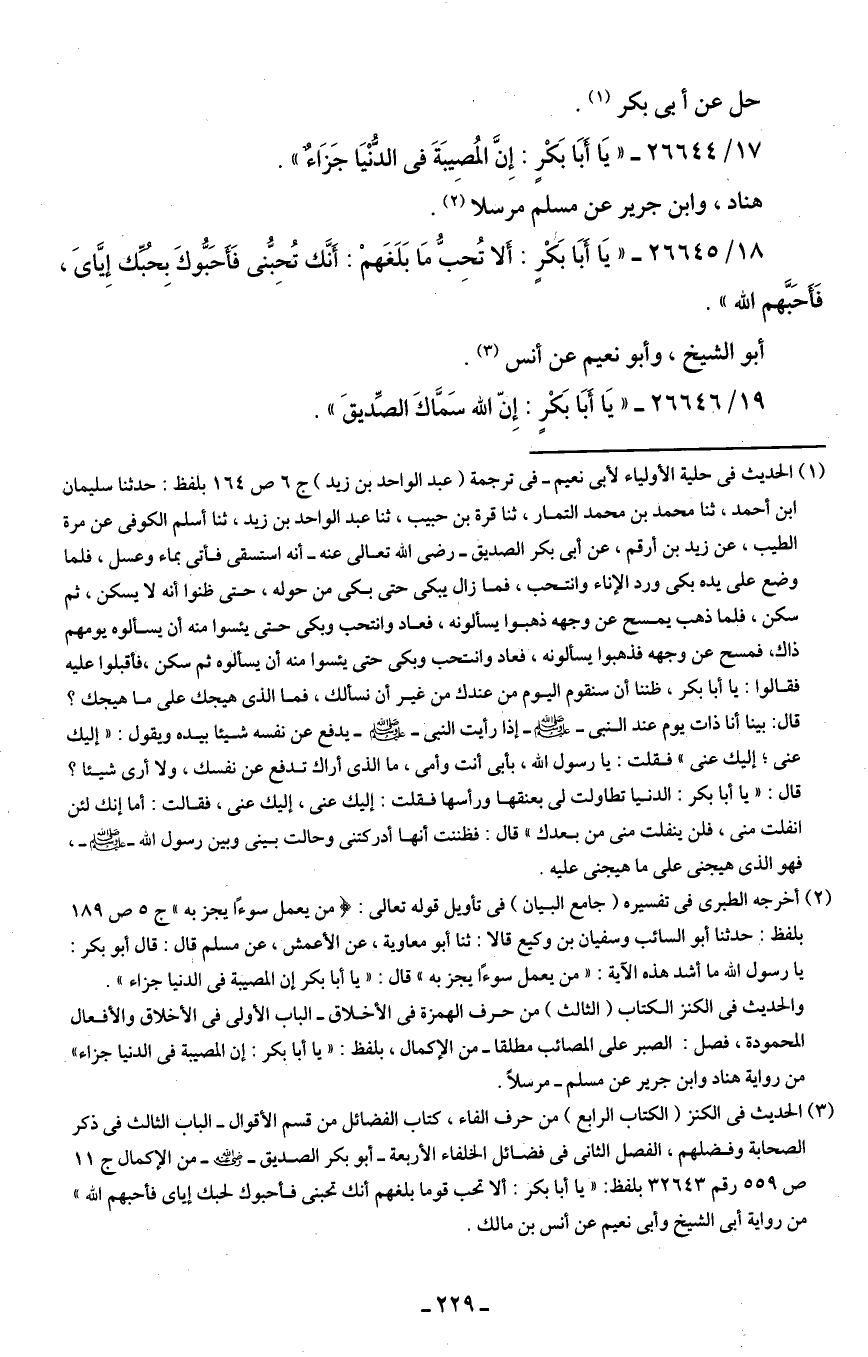 حل عن أبى بكر (١) .
١٧/ ٢٦٦٤٤ ـ « يَا أَبَا بَكْرٍ : إِنَّ المُصِيبَةَ فى الدُّنْيَا جَزَاءٌ » .
هناد ، وابن جرير عن مسلم مرسلا (٢) .
١٨/ ٢٦٦٤٥ ـ « يَا أَبَا بَكْرٍ : أَلا تُحبُّ مَا بَلَغَهمْ : أَنَّك تُحبُّنى فَأَحَبُّوكَ بِحُبِّك إِيَّاىَ ،
فَأَحَبَّهم الله » .
أبو الشيخ ، وأبو نعيم عن أنس (٣) .
١٩/ ٢٦٦٤٦ ـ « يَا أَبَا بَكْرٍ : إِنّ الله سَمَّاكَ الصِّديقَ » .
(١) الحديث فى حلية الأولياء لأبى نعيم ـ فى ترجمة ( عبد الواحد بن زيد ) ج ٦ ص ١٦٤ بلفظ : حدثنا سليمان
ابن أحمد ، ثنا محمد بن محمد التمار ، ثنا قرة بن حبيب ، ثنا عبد الواحد بن زيد ، ثنا أسلم الكوفى عن مرة
الطيب ، عن زيد بن أرقم ، عن أبى بكر الصديق ـ رضى الله تعالى عنه ـ أنه استسقى فأتى بماء وعسل ، فلما
وضع على يده بكى ورد الإناء وانتحب ، فما زال يبكى حتى بكى من حوله ، حتى ظنوا أنه لا يسكن ، ثم
سكن ، فلما ذهب يمسح عن وجهه ذهبوا يسألونه ، فعاد وانتحب وبكى حتى يئسوا منه أن يسألوه يومهم
ذاك، فمسح عن وجهه فذهبوا يسألونه ، فعاد وانتحب وبكى حتى يئسوا منه أن يسألوه ثم سكن ،فأقبلوا عليه
فقالوا : يا أبا بكر ، ظننا أن سنقوم اليوم من عندك من غير أن نسألك ، فما الذى هيجك على ما هيجك ؟
قال: بينا أنا ذات يوم عند النبى ـ ﷺ ـ إذا رأيت النبى ـ ﷺ ـ يدفع عن نفسه شيئا بيده ويقول : « إليك
عنى ؛ إليك عنى » فقلت : يا رسول الله ، بأبى أنت وأمى ، ما الذى أراك تدفع عن نفسك ، ولا أرى شيئا ؟
قال : « يا أبا بكر : الدنيا تطاولت لى بعنقها ورأسها فقلت : إليك عنى ، إليك عنى ، فقالت : أما إنك لئن
انفلت منى ، فلن ينفلت منى من بعدك » قال : فظننت أنها أدركتنى وحالت بينى وبين رسول الله ـ ﷺ ـ ،
فهو الذى هيجنى على ما هيجنى عليه .
(٢) أخرجه الطبرى فى تفسيره ( جامع البيان ) فى تأويل قوله تعالى : ﴿ من يعمل سوءًا يجز به » ج ٥ ص ١٨٩
بلفظ : حدثنا أبو السائب وسفيان بن وكيع قالا : ثنا أبو معاوية ، عن الأعمش ، عن مسلم قال : قال أبو بكر :
يا رسول الله ما أشد هذه الآية : « من يعمل سوءًا يجز به » قال : « يا أبا بكر إن المصيبة فى الدنيا جزاء » .
والحديث فى الكنز الكتاب ( الثالث ) من حرف الهمزة فى الأخلاق ـ الباب الأولى فى الأخلاق والأفعال
المحمودة ، فصل : الصبر على المصائب مطلقا ـ من الإكمال ، بلفظ : « يا أبا بكر : إن المصيبة فى الدنيا جزاء»
من رواية هناد وابن جرير عن مسلم ـ مرسلاً .
(٣) الحديث فى الكنز ( الكتاب الرابع ) من حرف الفاء ، كتاب الفضائل من قسم الأقوال ـ الباب الثالث فى ذكر
الصحابة وفضلهم ، الفصل الثانى فى فضائل الخلفاء الأربعة ـ أبو بكر الصديق ـ رضي الله عنه ـ من الإكمال ج ١١
ص ٥٥٩ رقم ٣٢٦٤٣ بلفظ: « يا أبا بكر : ألا تحب قوما بلغهم أنك تحبنى فأحبوك لحبك إياى فأحبهم الله »
من رواية أبى الشيخ وأبى نعيم عن أنس بن مالك .
ـ ٢٢٩ ـ